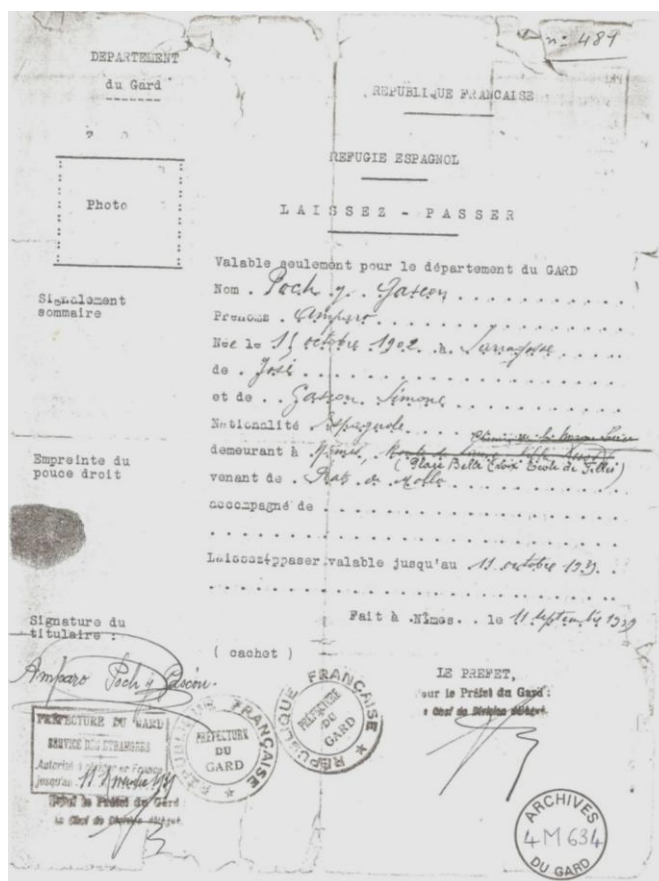 n° 481
DEPARTEMENT
du Gard
REPUBLIQUE FRANCAISE
REFUGIE ESPAGNOL
Photo
LAISSEZ - PASSER
Valable seulement pour le département du GARD
Signalement
sommaire
Nom . Poch y Gascon
Prenoms . Amparo
Née le 15 octobre 1902 à Sarragosse
de . José
et de . Gascon Simone
Nationalité Espagnole
demeurant à Nîmes,
(Place Belle Croix Ecole de Filles)
Empreinte du
pouce droit
venant de . Prats de Mollo
accompagné de
Laissez-ppaser valable jusqu'au 11 octobre 1939
Fait à .Nîmes. . le 11 septembre 1939
Signature du
titulaire :
( cachet )
Amparo Poch y Gascón.
LE PREFET,
Pour le Préfet du Gard :
Le Chef de Division délégué.
PREFECTURE DU GARD
SERVICE DES ETRANGERS
Autorisé à résider en France
jusqu'au 11
Pour le Préfet du Gard
Le Chef de Division délégué.
REPUBLIQUE FRANÇAISE
PRÉFECTURE
DU
GARD
REPUBLIQUE FRANÇAISE
PRÉFECTURE
DU
GARD
ARCHIVES
4 M 634
DU GARD